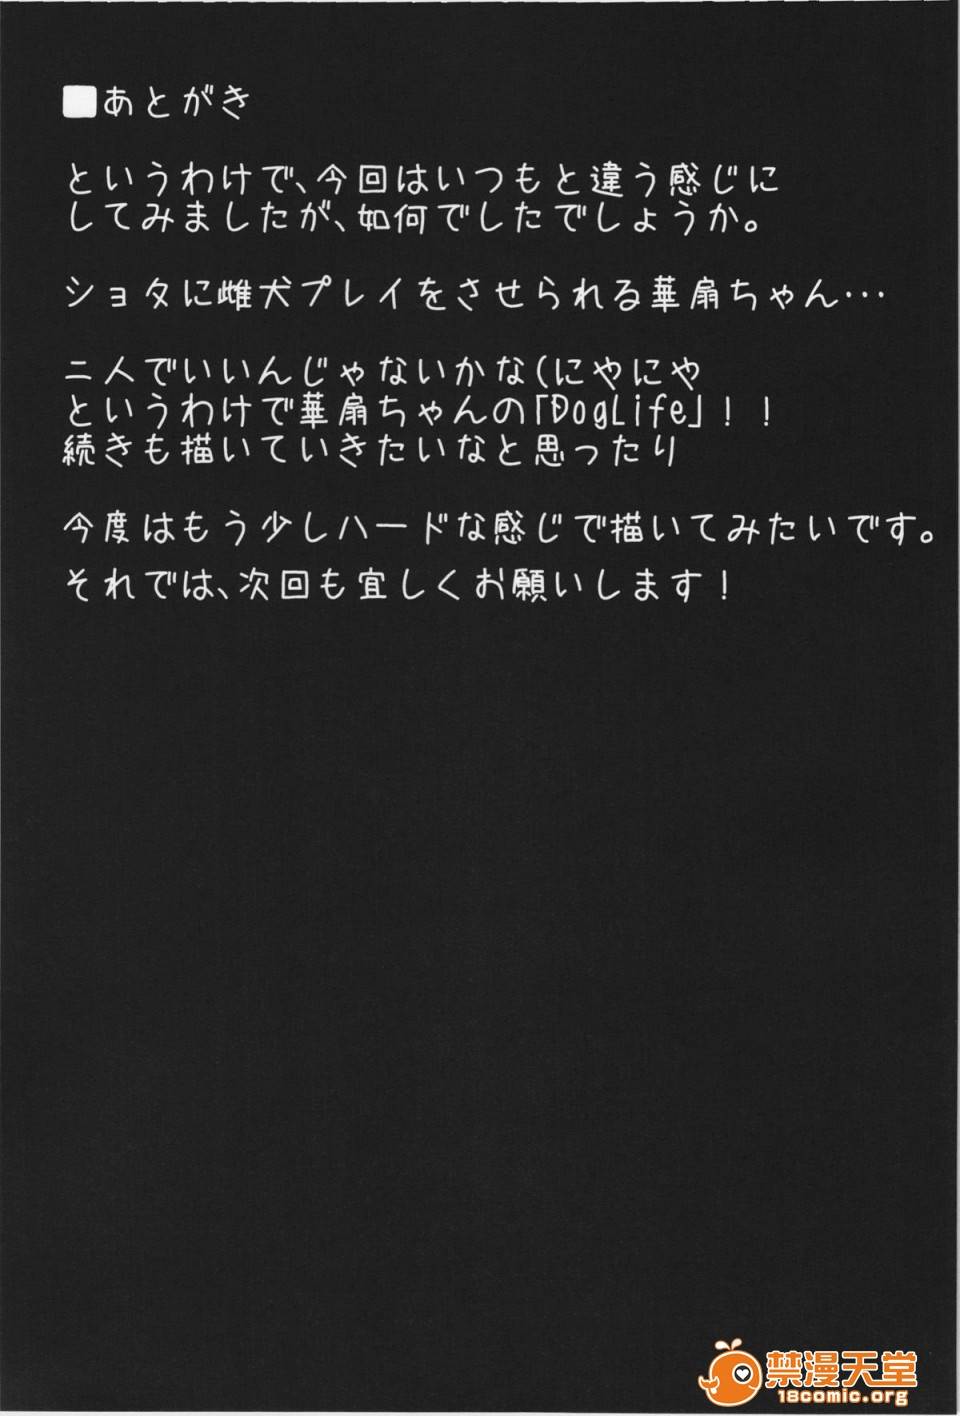 ■あとがき
というわけで、今回はいつもと違う感じに
してみましたが、如何でしたでしょうか。
ショタに雌犬プレイをさせられる華扇ちゃん…
二人でいいんじゃないかな(にやにや
というわけで華扇ちゃんの「DogLife」！！
続きも描いていきたいなと思ったり
今度はもう少しハードな感じで描いてみたいです。
それでは、次回も宜しくお願いします！
禁漫天堂
18comic.org